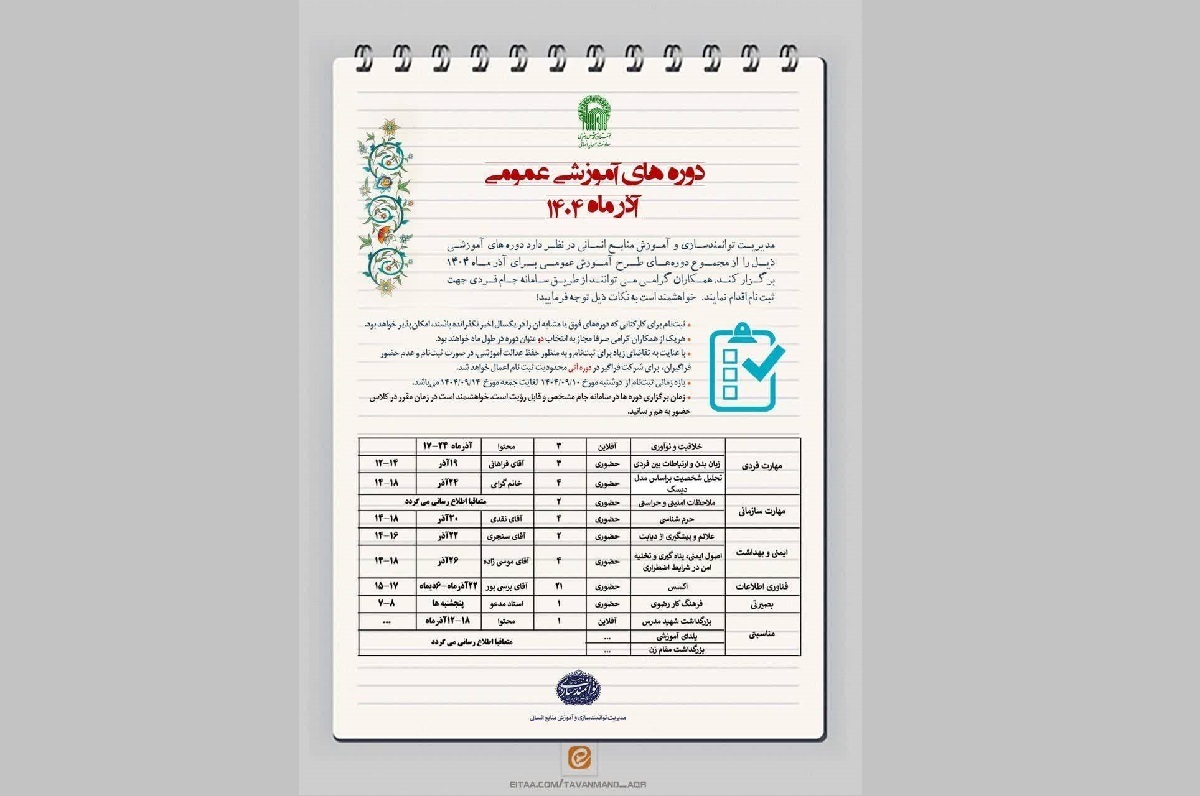 دوره های آموزشی عمومی
آذر ماه ۱۴۰۴
مدیریت توانمندسازی و آموزش منابع انسانی در نظر دارد دوره های آموزشی
ذیل را از مجموع دوره‌های طرح آموزش عمومی برای آذر ماه ۱۴۰۴
برگزار کند. همکاران گرامی می توانند از طریق سامانه جام فردی جهت
ثبت نام اقدام نمایند. خواهشمند است به نکات ذیل توجه فرمایید!
• ثبت‌نام برای کارکنانی که دوره‌های فوق یا مشابه آن را در یکسال اخیر نگذرانده باشند، امکان پذیر خواهد بود.
• هریک از همکاران گرامی صرفا مجاز به انتخاب دو عنوان دوره در طول ماه خواهند بود.
• با عنایت به تقاضای زیاد برای ثبت‌نام و به منظور حفظ عدالت آموزشی، در صورت ثبت‌نام و عدم حضور
فراگیران، برای شرکت فراگیر در دوره آتی محدودیت ثبت نام اعمال خواهد شد.
• بازه زمانی ثبت‌نام از دوشنبه مورخ ۱۴۰۴/۰۹/۱۰ لغایت جمعه مورخ ۱۴۰۴/۰۹/۱۴ می‌باشد.
• زمان برگزاری دوره ها در سامانه جام مشخص و قابل رؤیت است. خواهشمند است در زمان مقرر در کلاس
حضور به هم رسانید.
مهارت فردی خلاقیت و نوآوری آفلاین ۳ محتوا ۱۷-۲۴ آذرماه
زبان بدن و ارتباطات بین فردی حضوری ۲ آقای فراهانی ۱۹آذر ۱۲-۱۴
تحلیل شخصیت براساس مدل دیسک حضوری ۴ خانم گرای ۲۴آذر ۱۴-۱۸
مهارت سازمانی ملاحظات امنیتی و حراستی حضوری ۲ متعاقبا اطلاع رسانی می گردد
حرم شناسی حضوری ۴ آقای نقدی ۳۰آذر ۱۴-۱۸
ایمنی و بهداشت علائم و پیشگیری از دیابت حضوری ۲ آقای سنجری ۲۲آذر ۱۴-۱۶
اصول ایمنی، پناه گیری و تخلیه امن در شرایط اضطراری حضوری ۴ آقای موسی زاده ۲۶آذر ۱۴-۱۸
فناوری اطلاعات اکسس حضوری ۲۱ آقای پرسی پور ۲۲آذرماه-۶دیماه ۱۵-۱۷
بصیرتی فرهنگ کار رضوی حضوری ۱ استاد مدعو پنجشنبه ها ۷-۸
مناسبتی بزرگداشت شهید مدرس آفلاین ۱ محتوا ۱۲-۱۸آذرماه ...
یلدای آموزشی ... متعاقبا اطلاع رسانی می گردد
بزرگداشت مقام زن ...
توانمندسازی
مدیریت توانمندسازی و آموزش منابع انسانی
EITAA.COM/TAVANMAND_AQR